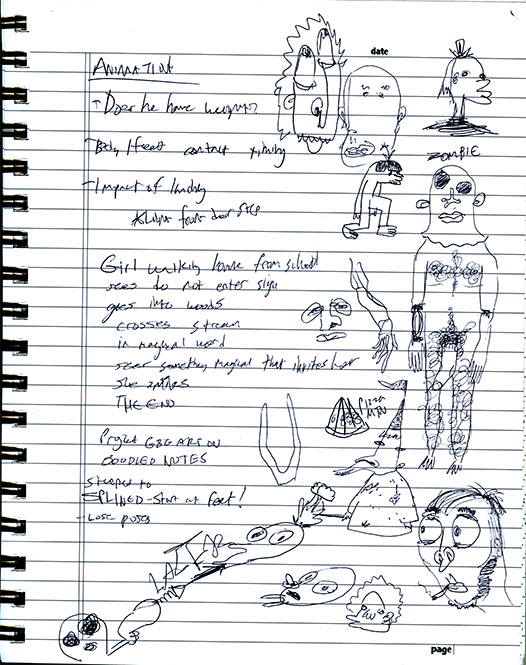 date
ANIMATION
- Does he have weight?
- Body / feet contact timing
- Impact of landing
Girl walking home from school
sees do not enter sign
goes into woods
crosses stream
in magical world
sees something magical that invites her
she enters
THE END
Project
DOODLED NOTES
stepped to
SPLINED - Start at feet!
- Lose poses
ZOMBIE
PIZZA
MAN
page